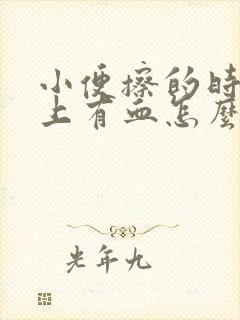 小便擦的时
上有血怎麼
光年九